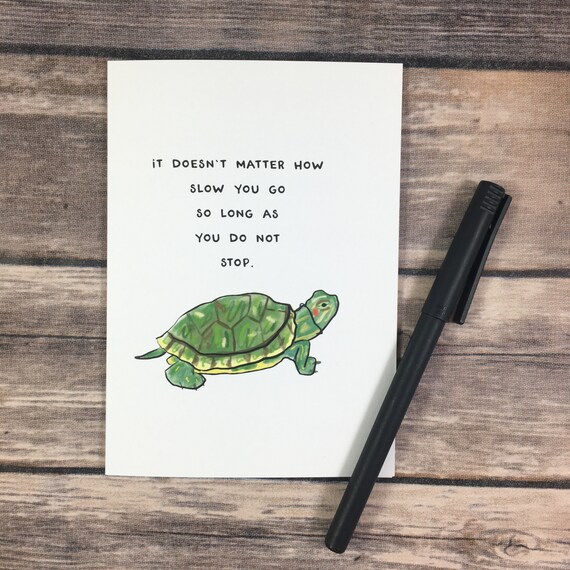 iT DOESN'T MATTER HOW
SLOW YOU GO
SO LONG AS
YOU DO NOT
STOP.